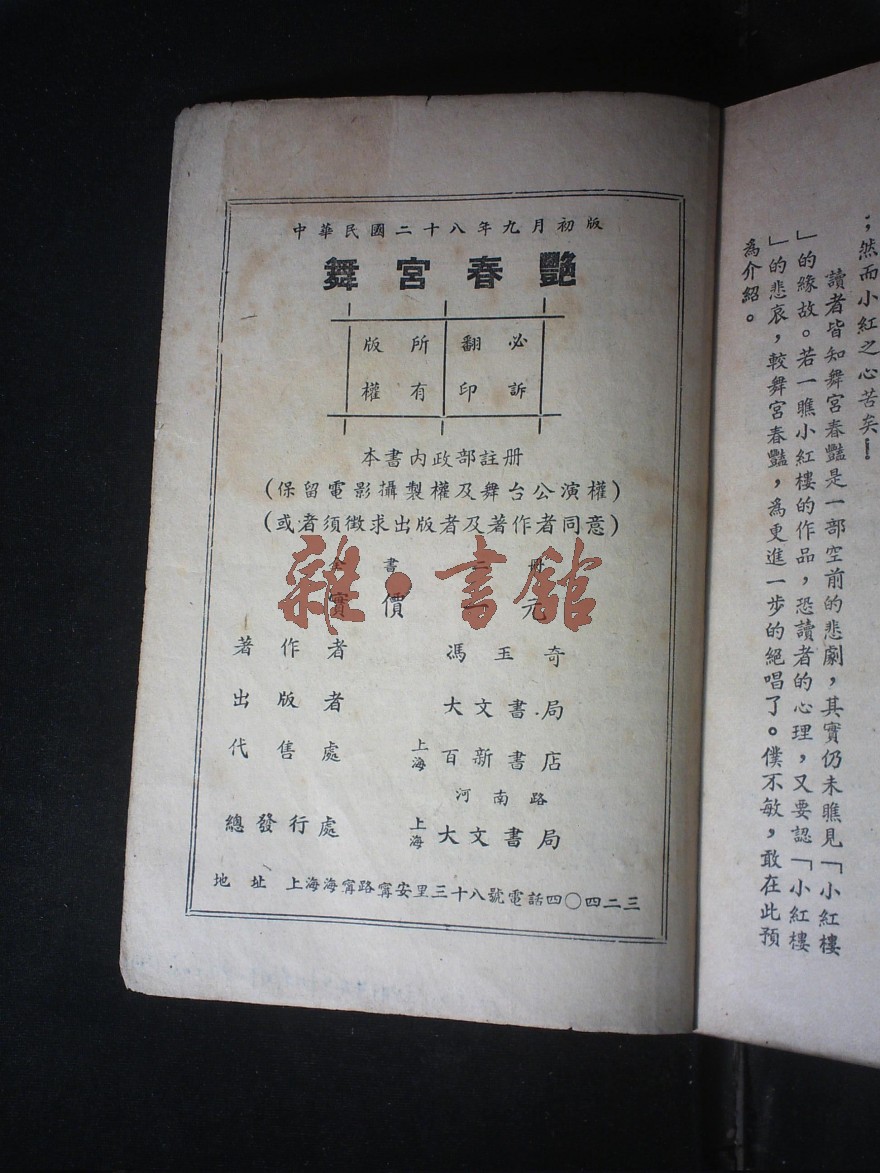 中華民國二十八年九月初版
舞宮春艷
版權所有
翻印必訴
本書內政部註册
(保留電影攝製權及舞台公演權)
(或者須徵求出版者及著作者同意)
全書 册
實價 元
著作者 馮玉奇
出版者 大文書局
代售處 上海百新書店
河南路
總發行處 上海大文書局
地址 上海海寗路寗安里三十八號電話四〇四二三
雜·書館
；然而小紅之心苦矣！
讀者皆知舞宮春豔是一部空前的悲劇，其實仍未瞧見「小紅樓
」的緣故。若一瞧小紅樓的作品，恐讀者的心理，又要認「小紅樓
」的悲哀，較舞宮春豔，爲更進一步的絕唱了。僕不敏，敢在此預
爲介紹。